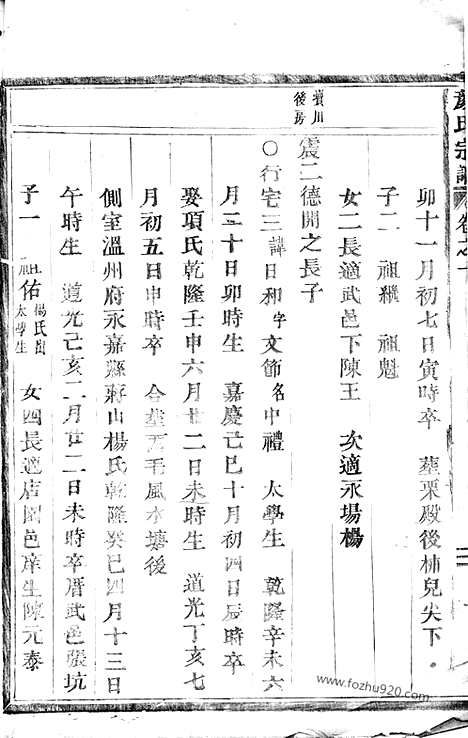 氏宗譜 卷之十
卯十一月初七日寅時卒 葬栗殿後柿兒尖下
子二 祖繩 祖魁
女二長適武邑下陳王 次適永場楊
後房
震二德開之長子
○行宅三諱日和字文節名中禮 太學生 乾隆辛未六
月三十日卯時生 嘉慶己巳十月初四日辰時卒
娶項氏乾隆壬申六月廿二日未時生 道光丁亥七
月初五日申時卒 合葬 毛風水塘後
側室溫州府永嘉縣蔣山楊氏乾隆癸巳四月十三日
午時生 道光己亥二月廿二日未時卒厝武邑 坑
子一 祖佑 楊氏出 太學生 女四長適店園邑庠生陳元泰
www.fozhu920.com